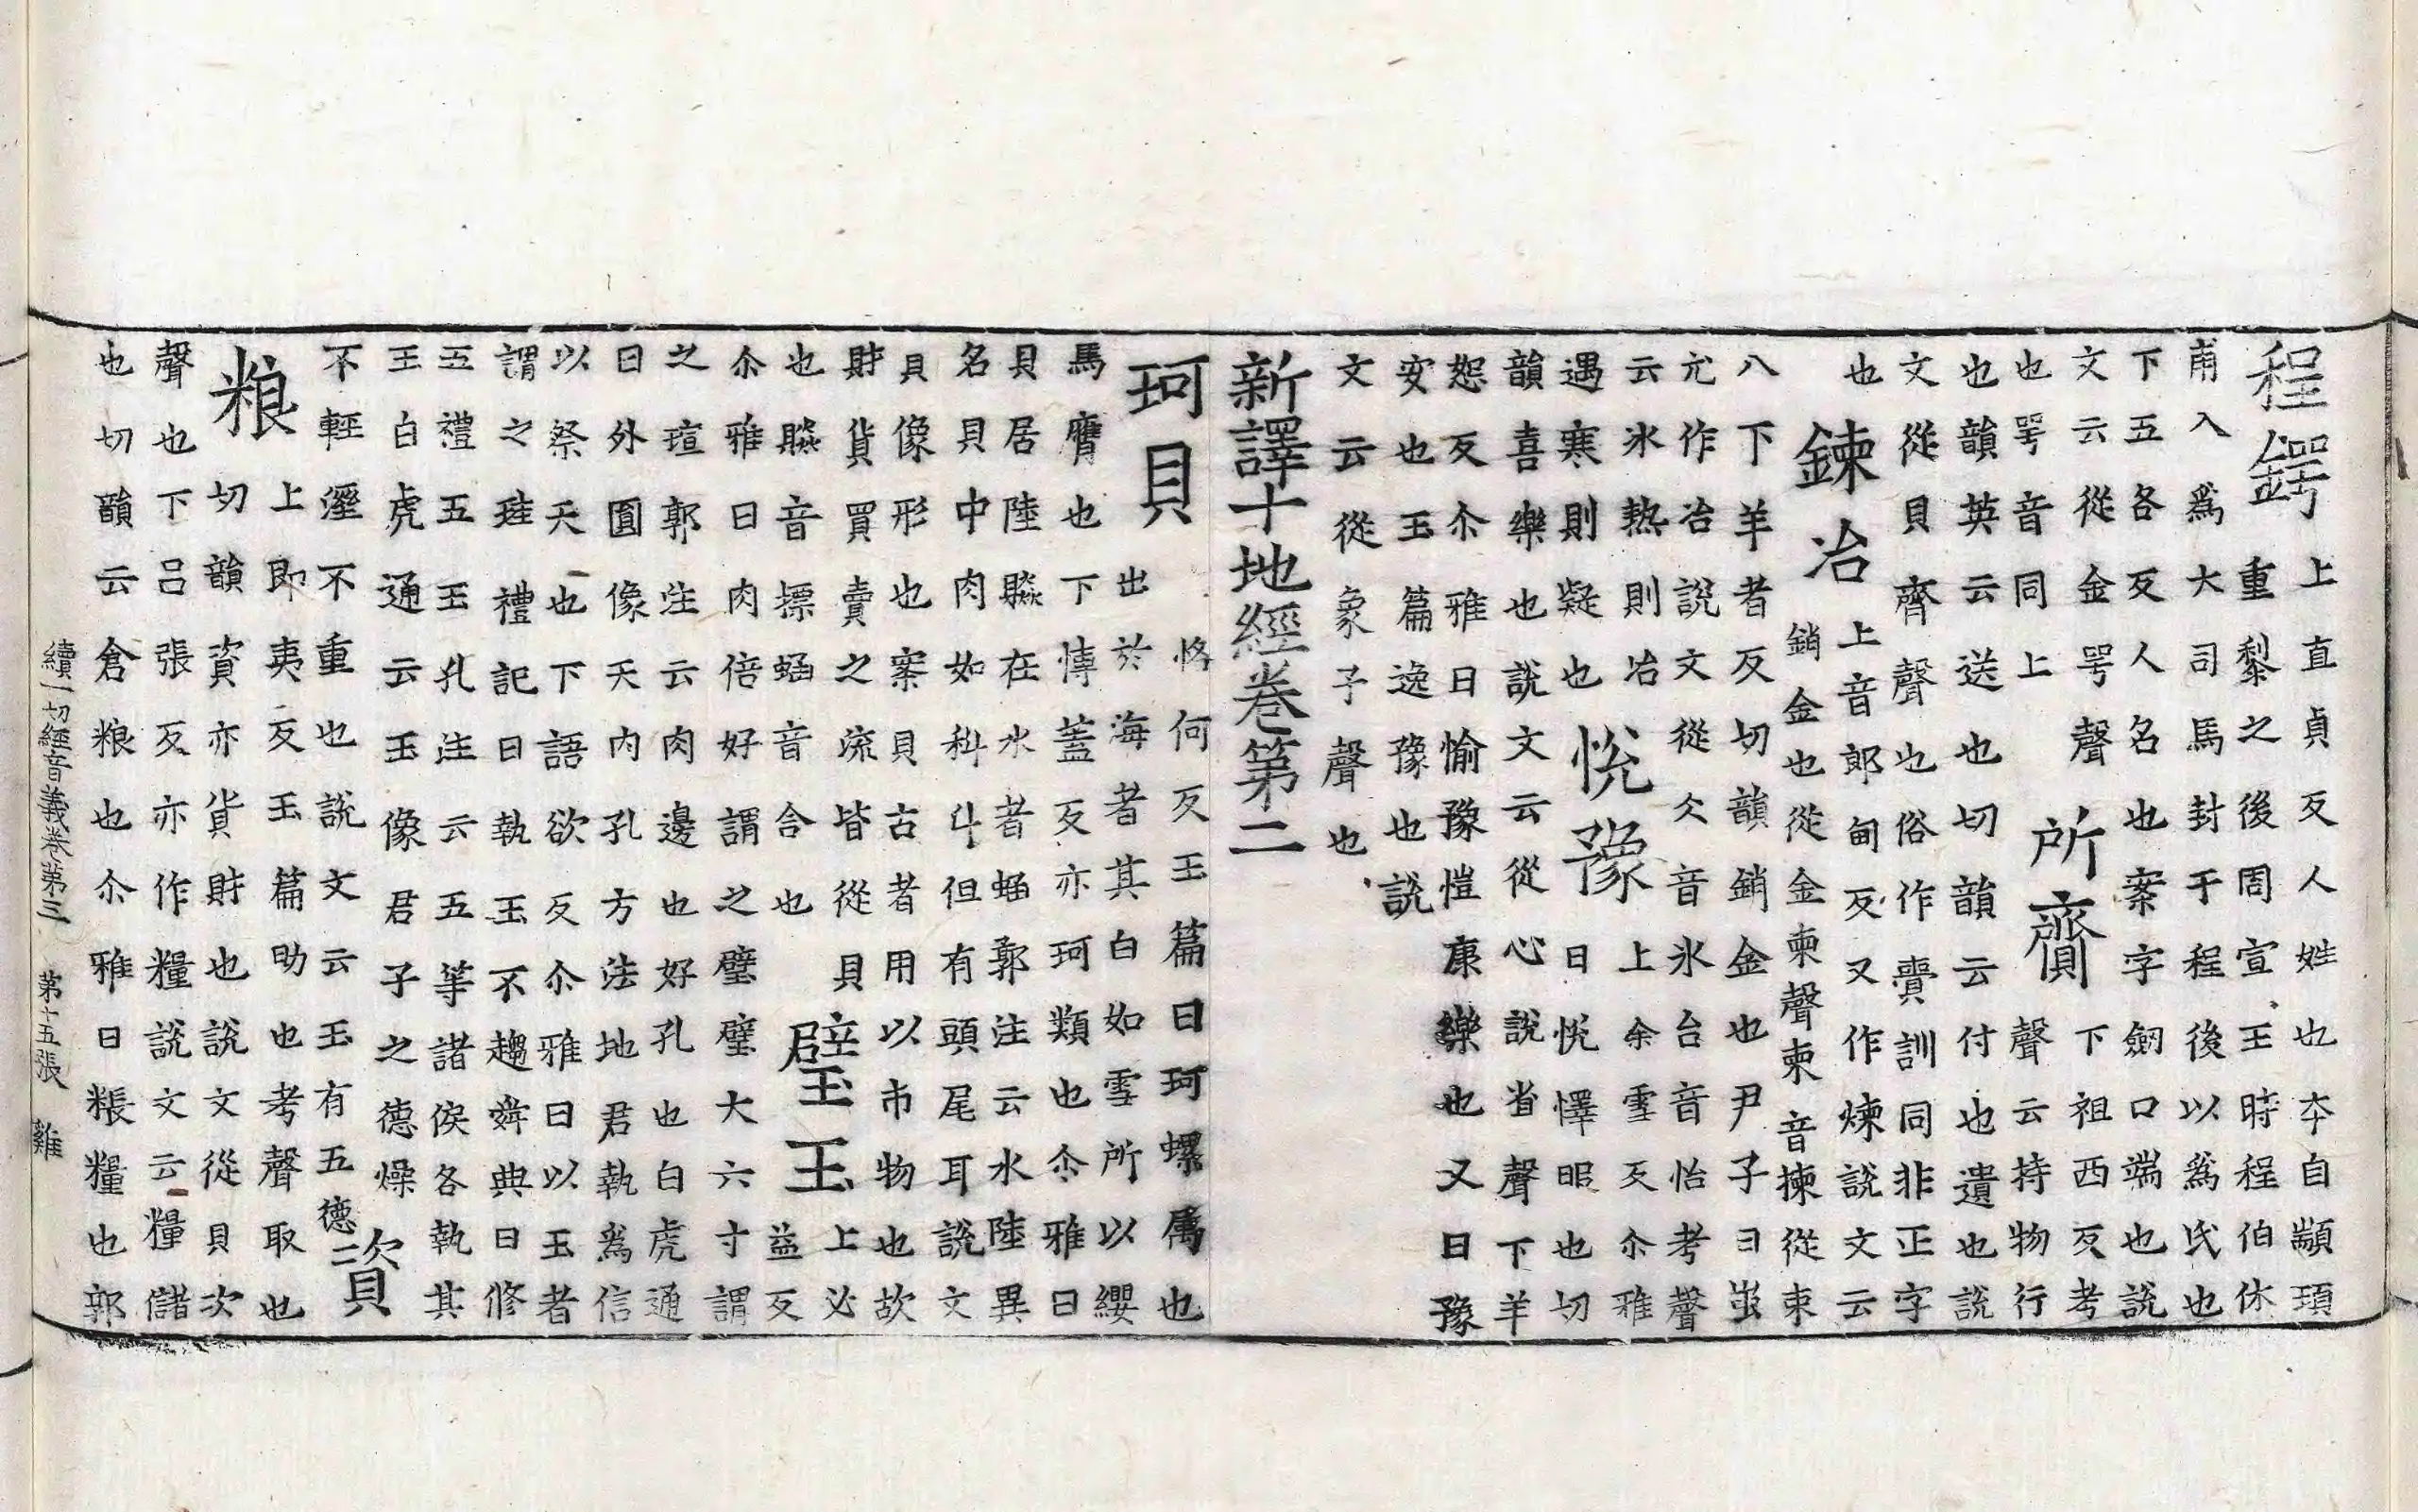 程鍔
上直貞反人姓也本自顓頊
重黎之後周宣王時程伯休
甫入爲大司馬封于程後以爲氏也
下五各反人名也案字劒口端也說
文云從金咢聲
也咢音同上
所齎
下祖西反考
聲云持物行
也韻英云送也切韻云付也遺也說
文從貝齊聲也俗作賷訓同非正字
也
鍊冶
上音郎甸反又作煉說文云
銷金也從金柬聲柬音揀從束
八下羊者反切韻銷金也尹子曰蚩
尤作冶說文從仌音氷台音怡考聲
云氷熱則冶
遇寒則凝也
悅豫
上余雪反尒雅
曰悅懌昵也切
韻喜樂也說文云從心說省聲下羊
恕反尒雅曰愉豫愷康樂也又曰豫
安也玉篇逸豫也說
文云從象子聲也
新譯十地經卷第二
珂貝
恪何反玉篇曰珂螺属也
出於海者其白如雪所以纓
馬膺也下愽蓋反亦珂類也尒雅曰
貝居陸贆在水者蝤郭注云水陸異
名貝中肉如科斗但有頭尾耳說文
貝像形也案貝古者用以市物也故
財貨買賣之流皆從貝
也贆音摽蝤音含也
璧玉
上必
益反
尒雅曰肉倍好謂之璧璧大六寸謂
之瑄郭注云肉邊也好孔也白虎通
曰外圓像天內孔方法地君執爲信
以祭天也下語欲反尒雅曰以玉者
謂之珪禮記曰執玉不趨舜典曰修
五禮五玉孔注云五等諸侯各執其
玉白虎通云玉像君子之德燥
不輕溼不重也說文云玉有五德二
資
粮
上即夷反玉篇助也考聲取也
切韻資亦貨財也說文從貝次
聲也下呂張反亦作糧說文云糧儲
也切韻云倉粮也尒雅曰粻糧也郭
續一切經音義卷第三 第十五張 雞